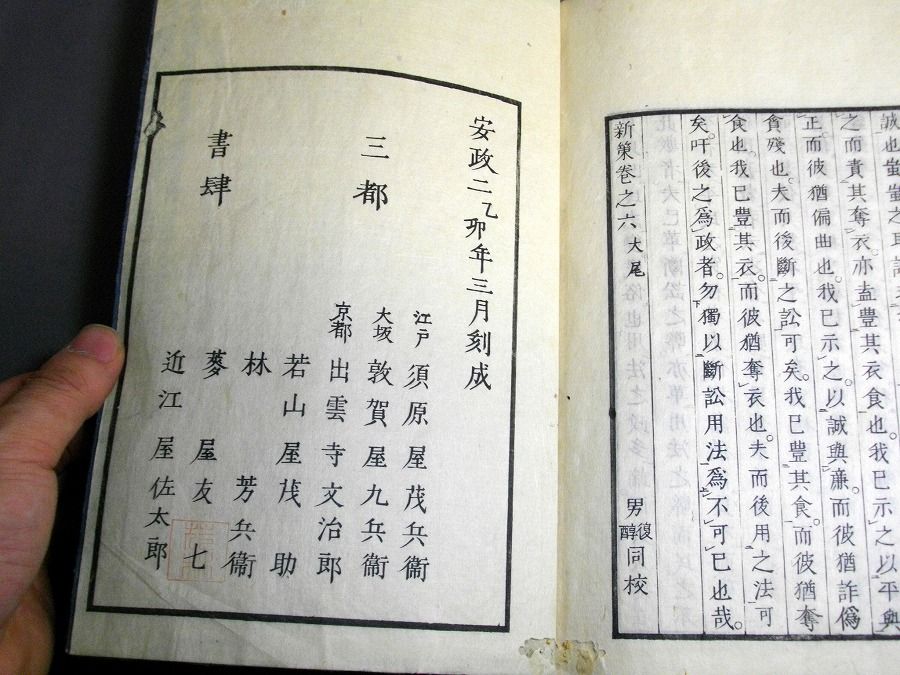 之而責其奪衣。亦盍豊其衣食也。我已示之以平與
正。而彼猶偏曲也。我已示之以誠與廉。而彼猶詐爲
貪殘也。夫而後斷之訟可矣。我已豊其食。而彼猶奪
食也。我已豊其衣。而彼猶奪衣也。夫而後用之法可
矣。吁後之爲政者。勿獨以斷訟用法爲不可已也哉。
新策卷之六 大尾
男 復 醇 同校
安政二乙卯年三月刻成
三都
江戸 須原屋茂兵衞
大坂 敦賀屋九兵衞
京都 出雲寺文治郎
若山屋茂助
林 芳兵衞
菱屋友七
近江屋佐太郎
書肆